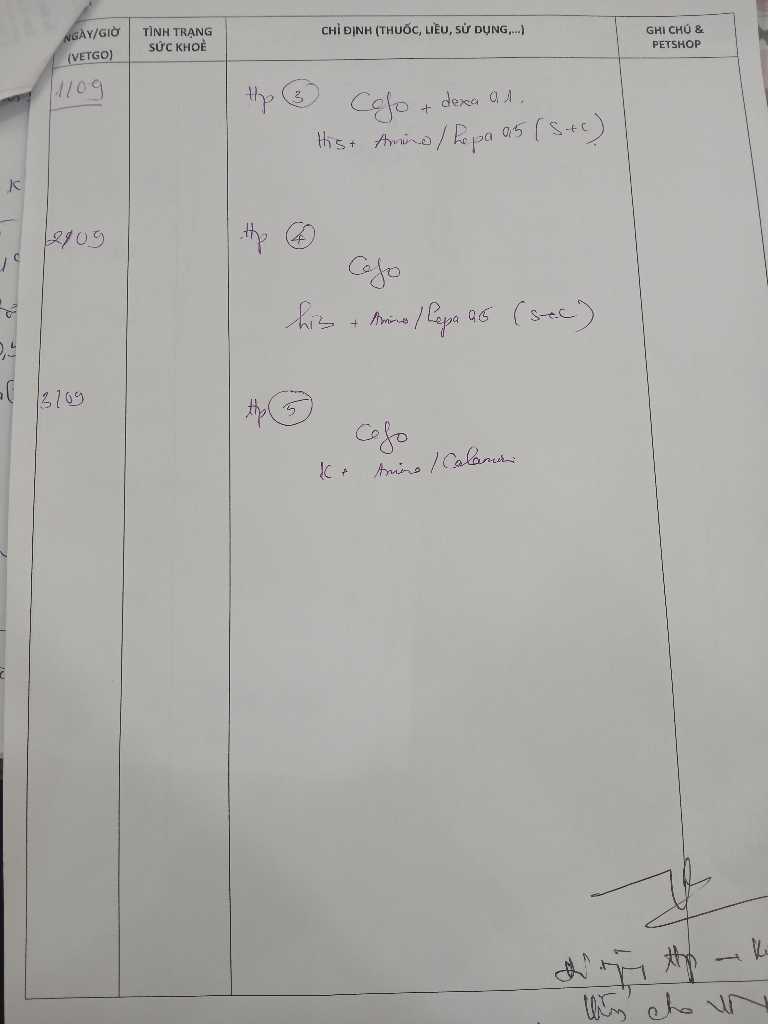 NGÀY/GIỜ (VETGO)
TÌNH TRẠNG SỨC KHOẺ
CHỈ ĐỊNH (THUỐC, LIỀU, SỬ DỤNG,...)
GHI CHÚ & PETSHOP
1/09
Hp 3 Cefo + dexa 0.1.
His + Amino/hepa 0,5 (S+C)
2/09
Hp 4
Cefo
his + Amino/hepa 0,5 (S+C)
3/09
Hp 5
Cefo
K + Amino/Calamin
Hp
cho